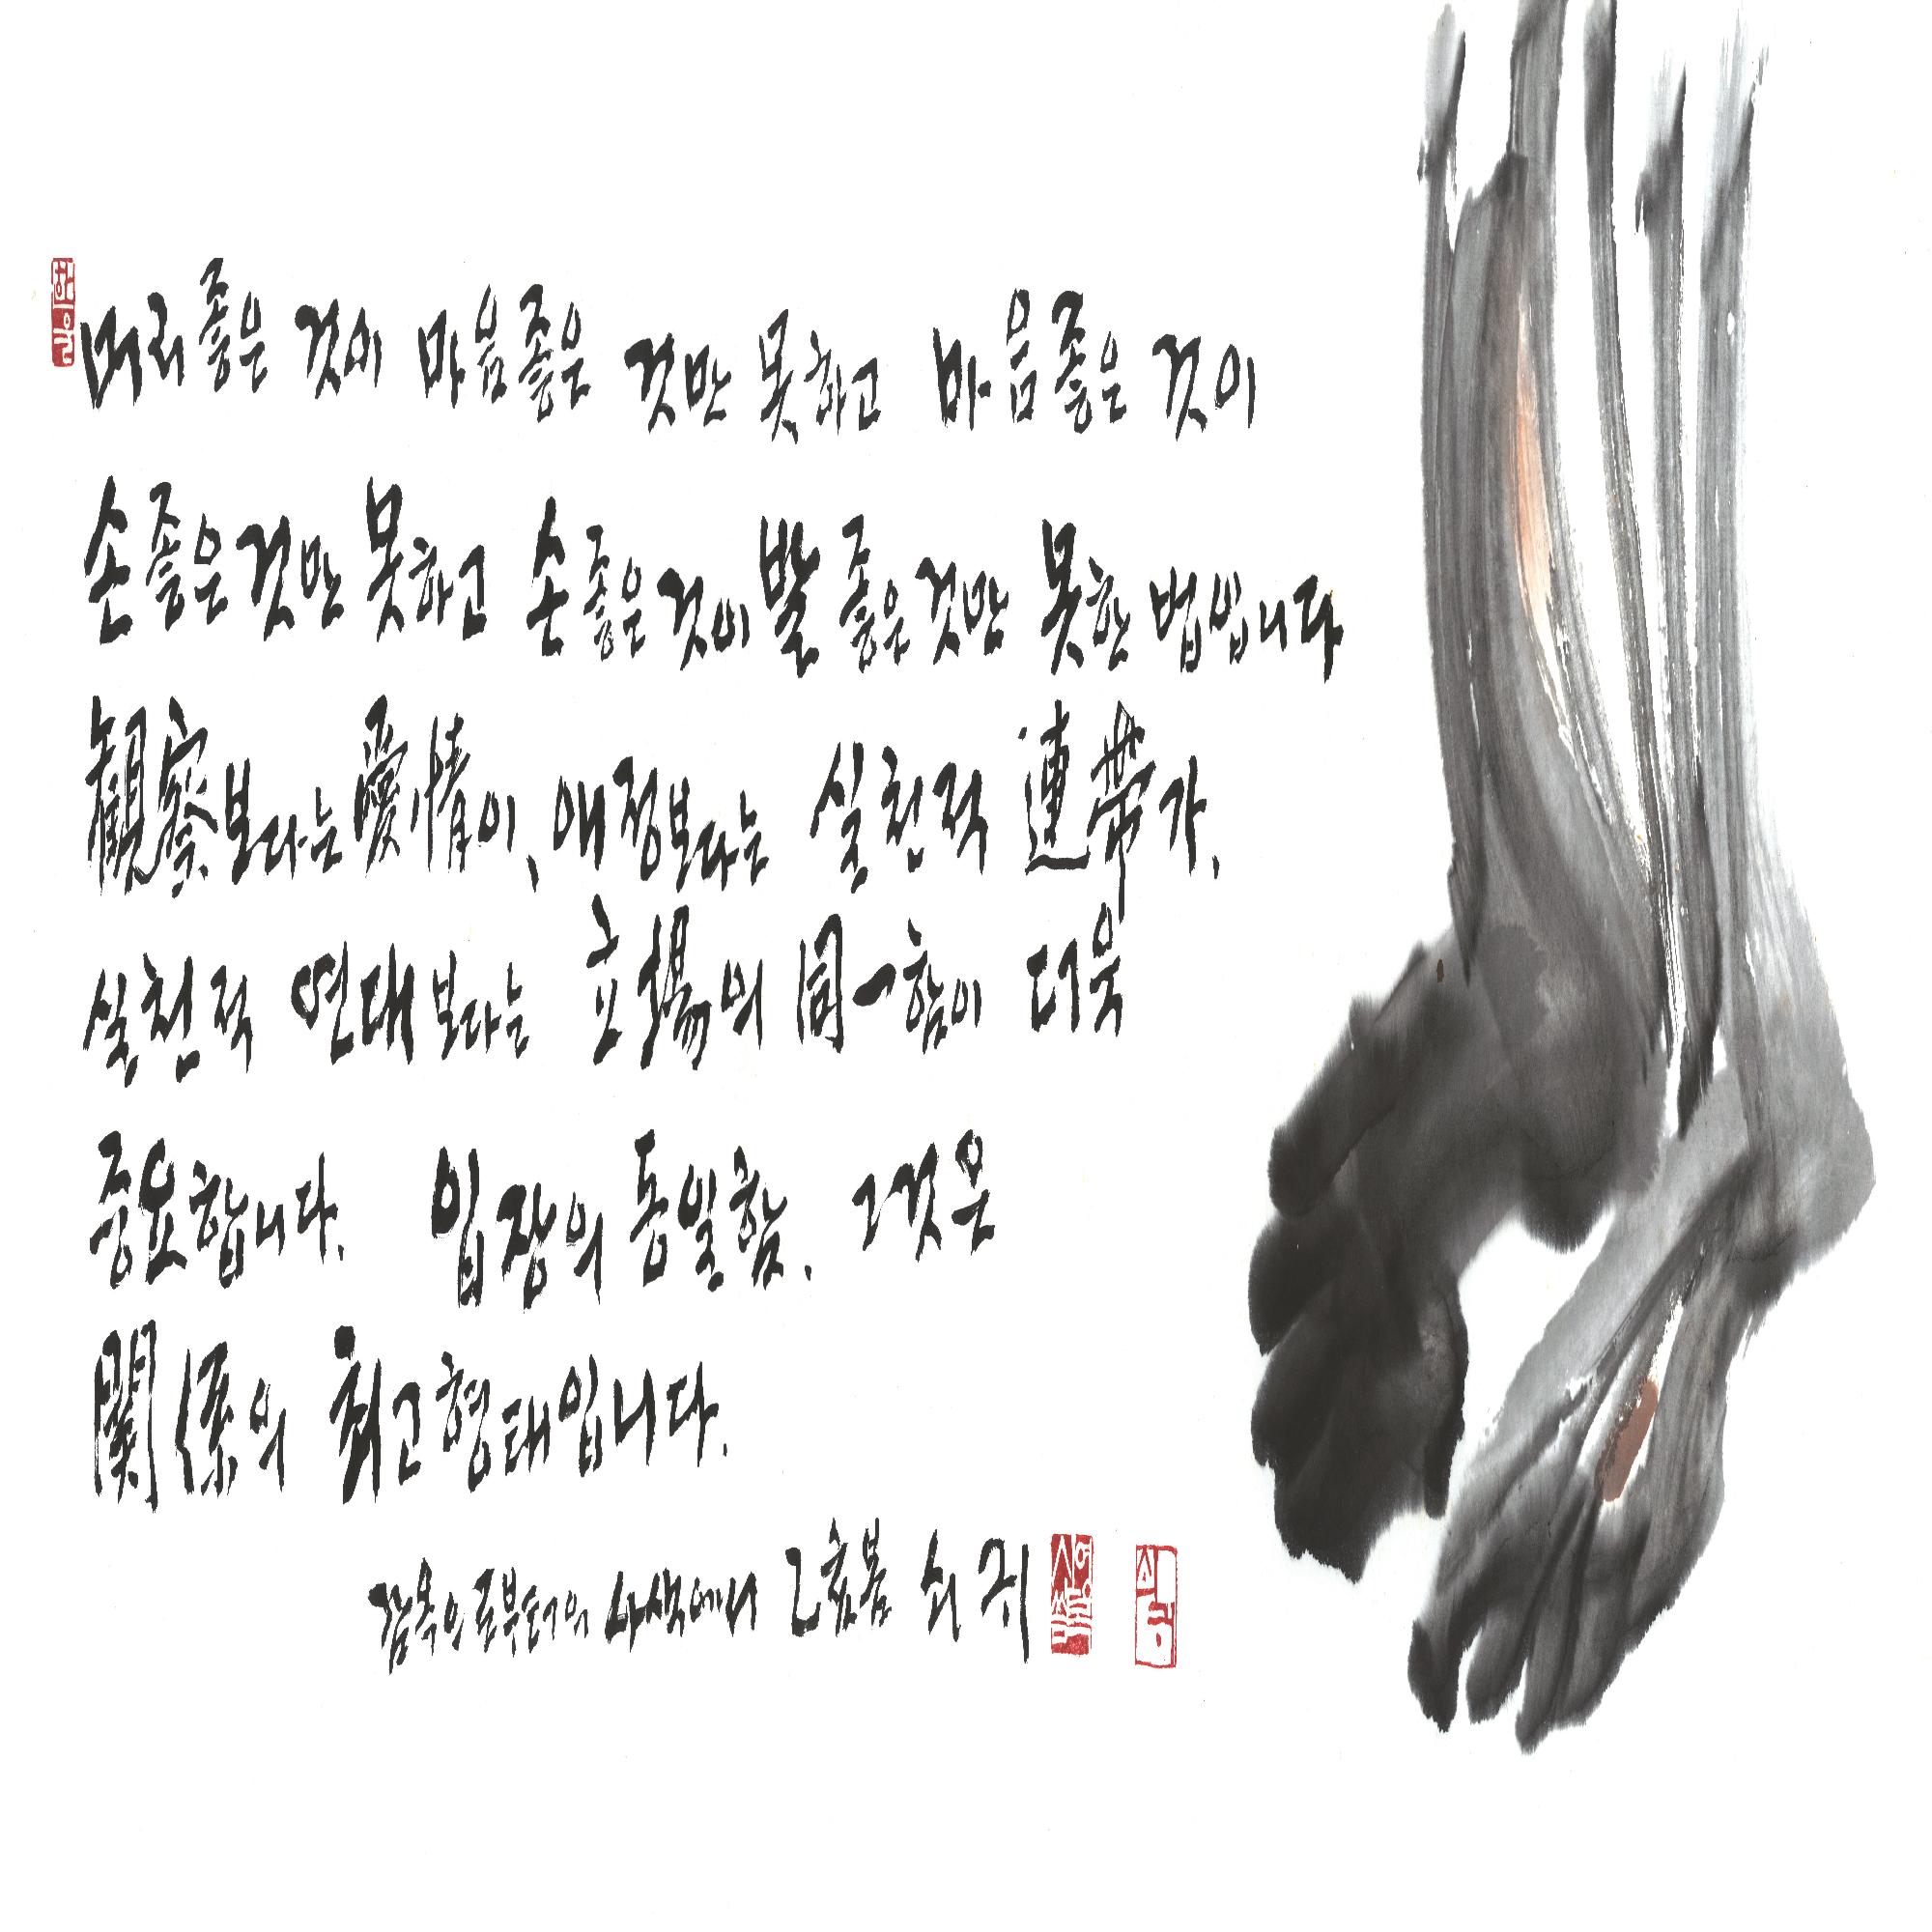 한울
머리좋은 것이 마음좋은 것만 못하고 마음좋은 것이
손좋은것만 못하고 손좋은것이 발좋은것만 못한 법입니다
観察보다는 愛情이, 애정보다는 실천적 連帶가,
실천적 연대보다는 立場의 同一함이 더욱
중요합니다. 입장의 동일함. 그것은
関係의 최고형태입니다.
감옥으로부터의 사색에서 乙亥봄 쇠귀